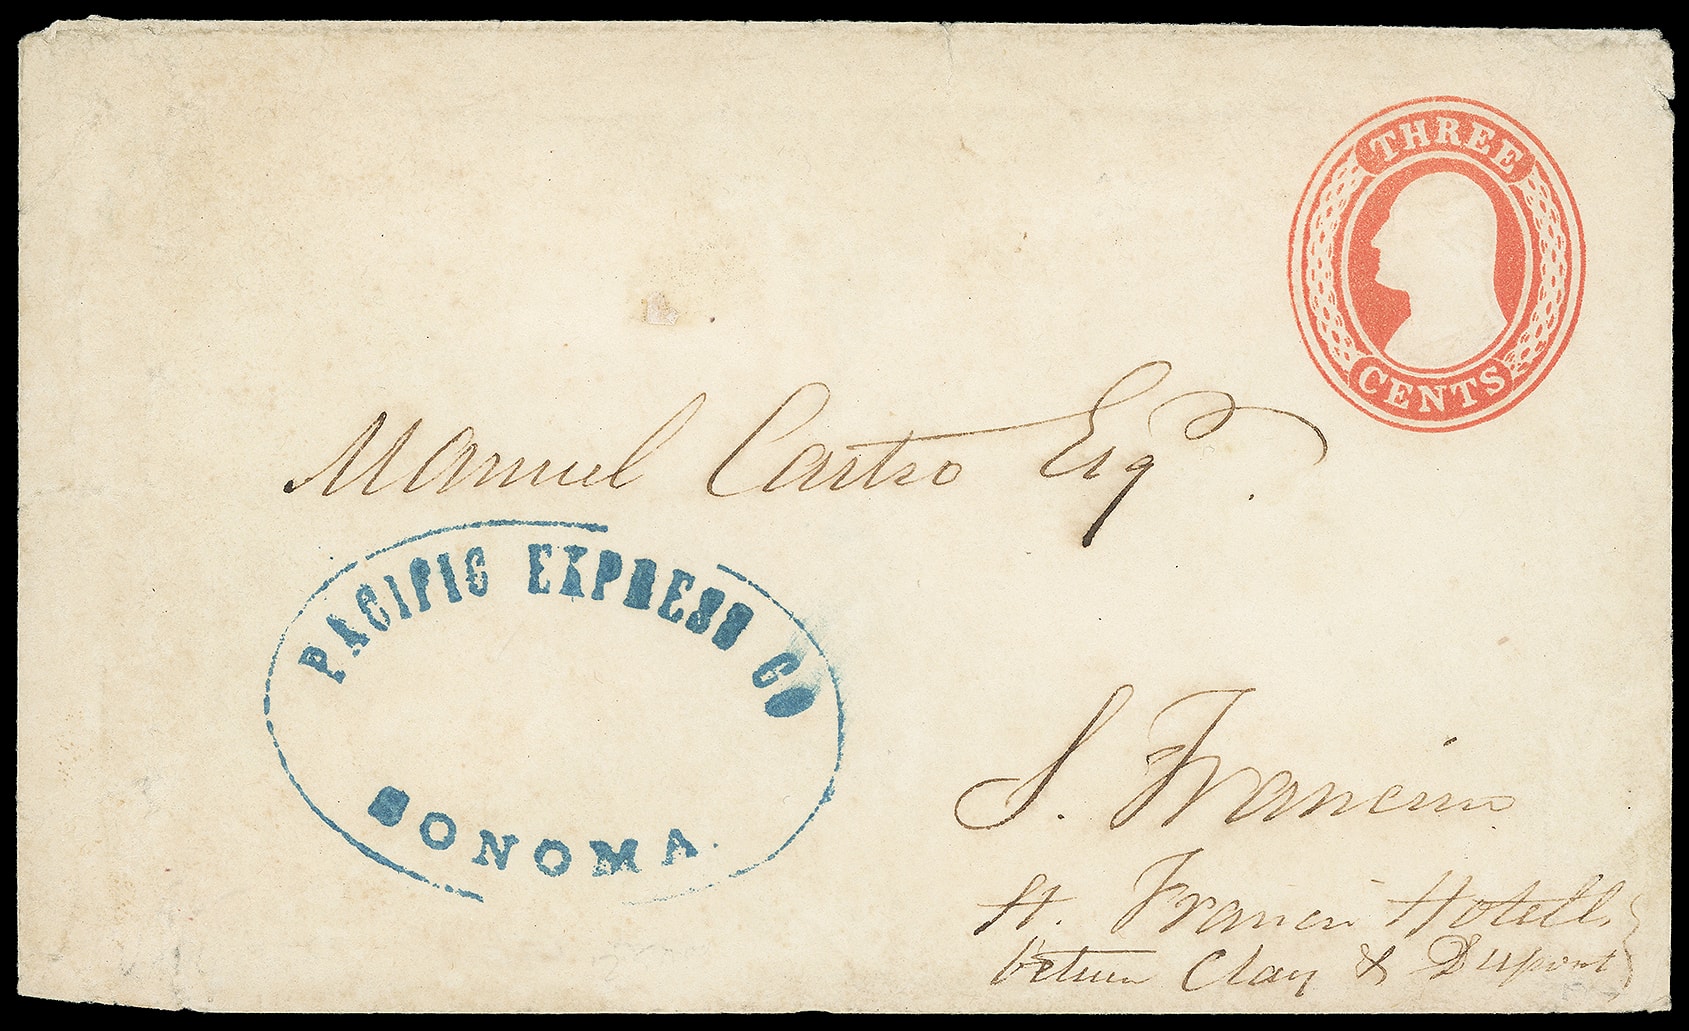 THREE
CENTS
Manuel Castro Esq.
PACIFIC EXPRESS CO
SONOMA.
S. Francisco
St. Francis Hotell
betwen Clay & Dupont